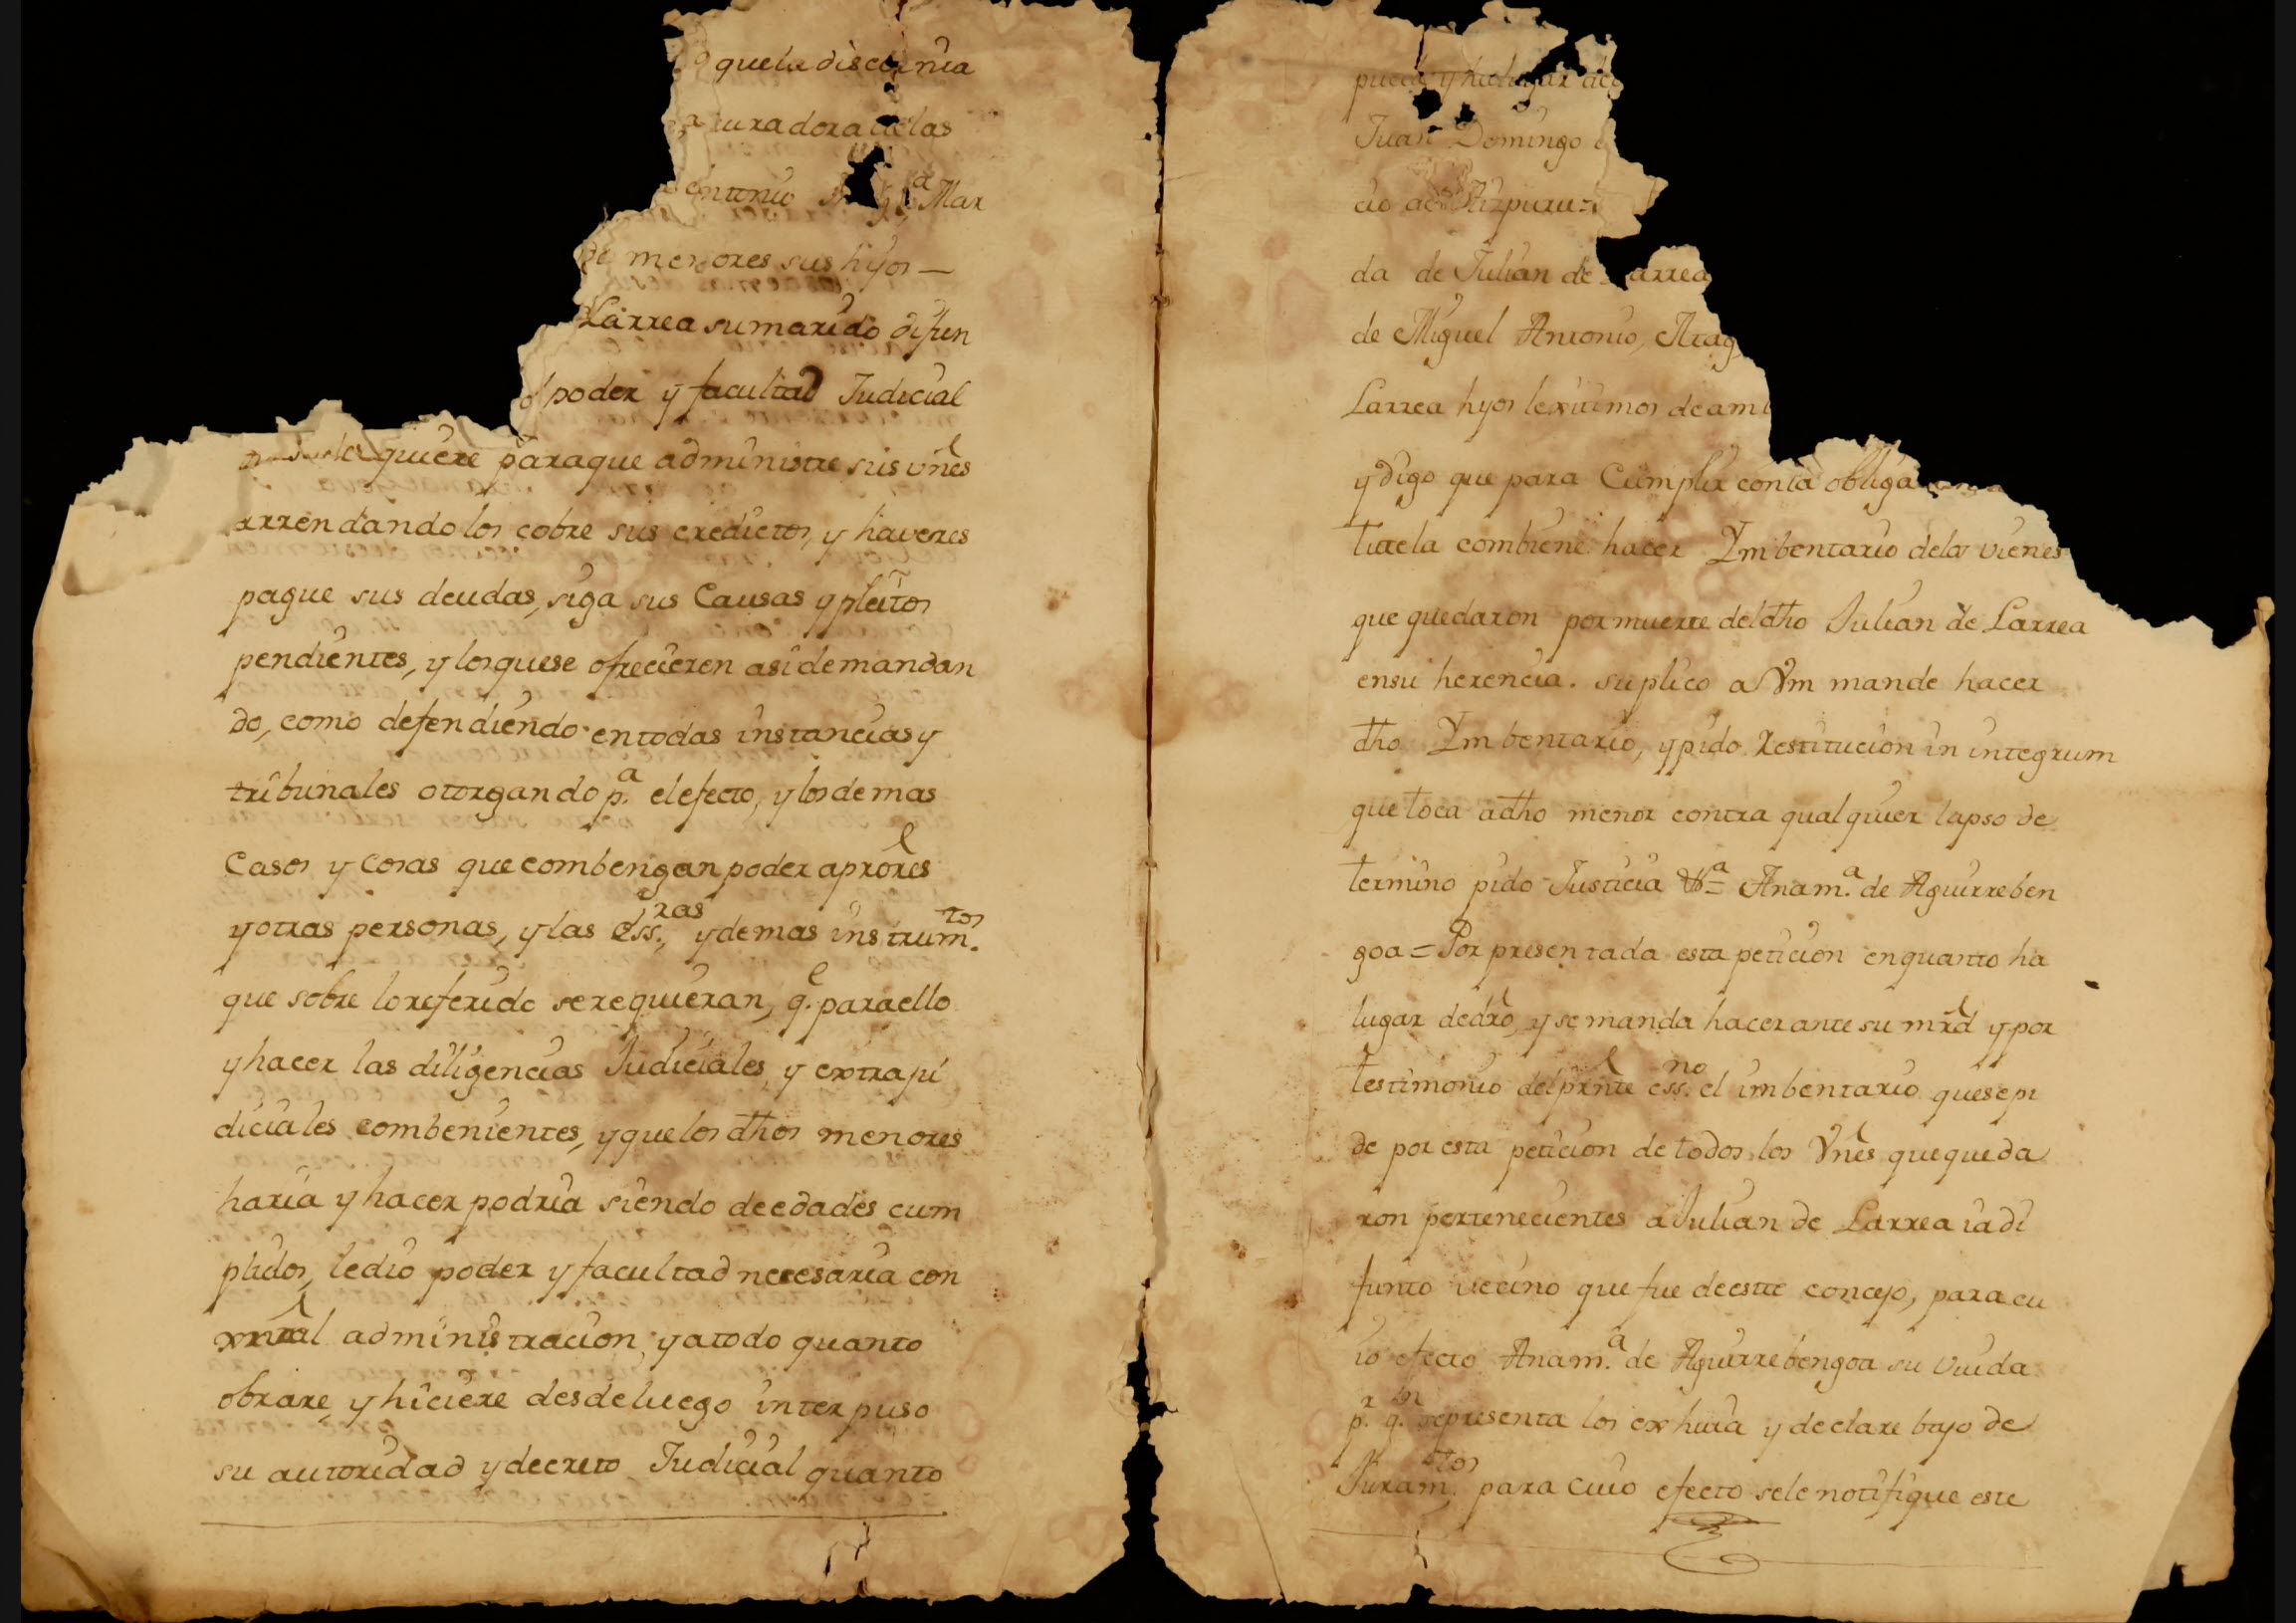 que la discernia
curadora de las
Antonio Mar
menores sus hijos —
Larrea su marido difun
poder y facultad Judicial
quiere para que administre sus vnes
arrendandolos cobre sus credictos, y haveres
pague sus deudas, siga sus Causas y pleitos
pendientes, y los que se ofrecieren asi demandan
do, como defendiendo en todas instancias y
tribunales otorgando p.ª el efecto, y los demas
Casos y cosas que combengan poder a prores
y otras personas, y las ess.ras y demas instrum.tos
que sobre lo referido se requieran, q.e para ello
y hacer las diligencias Judiciales y extraju
diciales combenientes, y que los dhos menores
haria y hacer podria siendo de edades cum
plidos, le dio poder y facultad necesaria con
xnral administracion, y a todo quanto
obrare, y hiciere desde luego interpuso
su autoridad y decreto Judicial quanto
puede y ha lugar
Juan Domingo
cio de Aizpuru
da de Julian de Larrea
de Miguel Antonio,
Larrea hijos lexitimos de
y digo que para Cumplir con la
tutela combiene hacer Ymbentario de los vienes
que quedaron por muerte del dho Julian de Larrea
en su herencia. suplico a Vm mande hacer
dho Ymbentario, y pido Restitucion in integrum
que toca a dho menor contra qualquier lapso de
termino pido Justicia &ª = Ana m.ª de Aguirreben
goa = Por presentada esta peticion en quanto ha
lugar de dro, y se manda hacer ante su mrd y por
testimonio del prnte ess.no el imbentario que se pi
de por esta peticion de todos los Vnes que queda
ron pertenecientes a Julian de Larrea ia di
funto vecino que fue de este concejo, para cu
io efecto Ana m.ª de Aguirrebengoa su viuda
p.r q.n representa los exhiva y declare bajo de
Juram.tos para cuio efecto se le notifique este